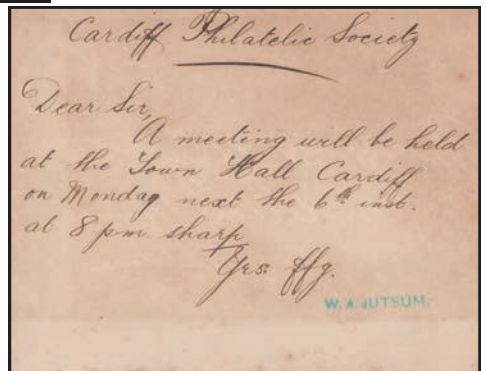 Cardiff Philatelic Society
Dear Sir,
A meeting will be held
at the Town Hall Cardiff
on Monday next the 6th inst.
at 8 pm. sharp
Yrs. ffy.
W. A. JUTSUM.